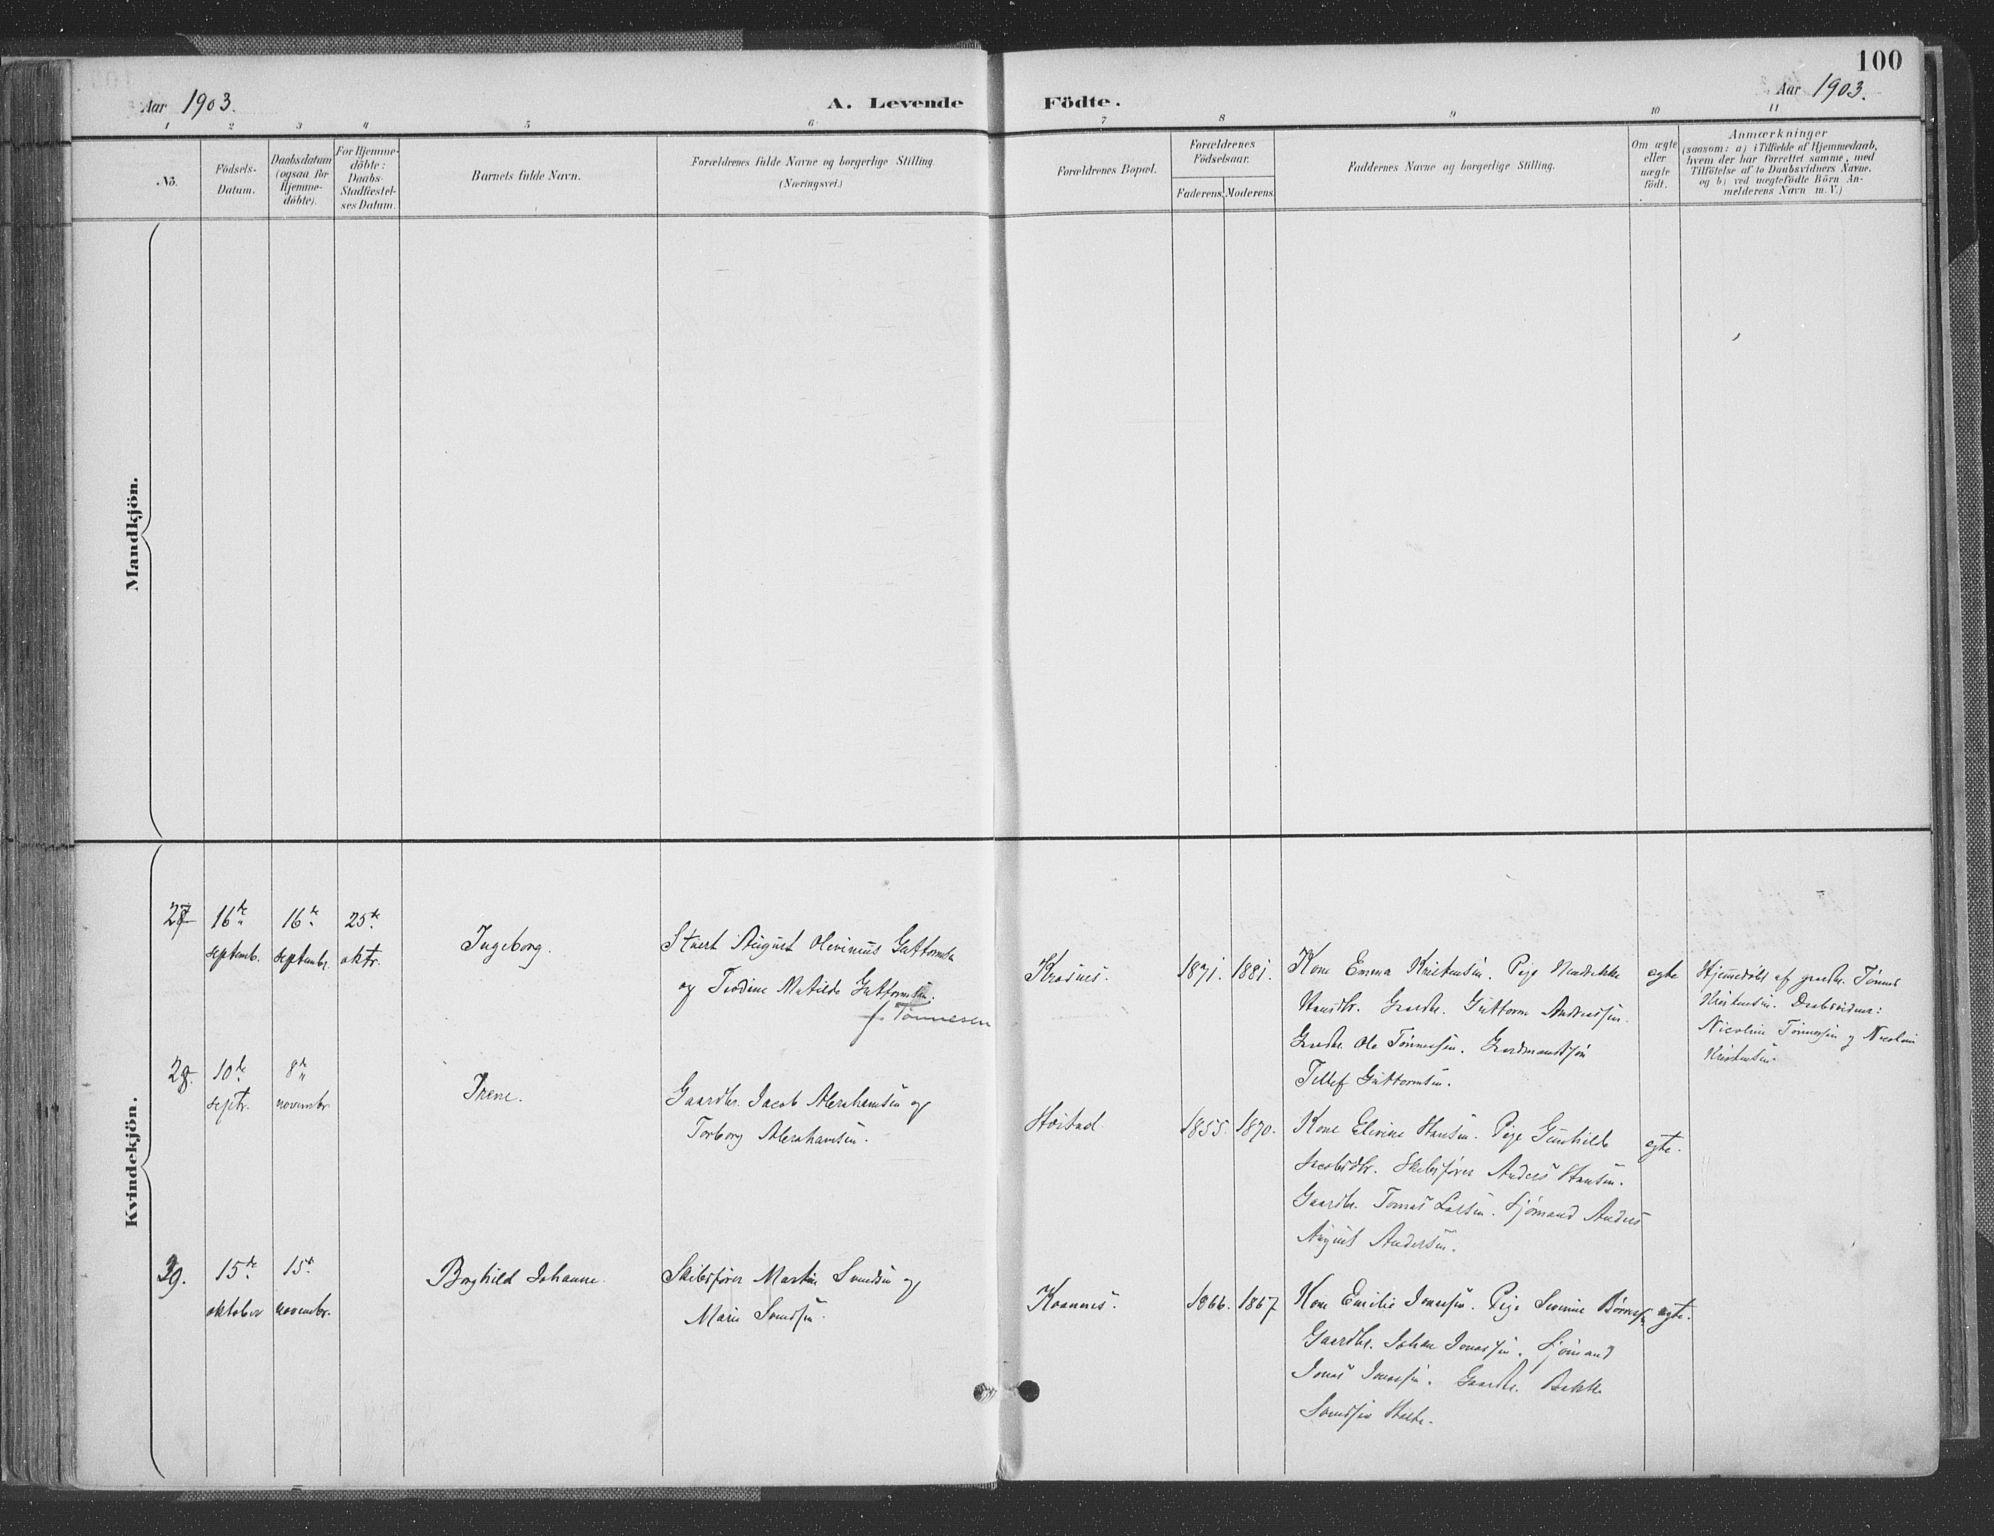 100
Aar 1903.
A. Levende Födte.
Aar 1903.
1 2 3 4 5 6 7 8 9 10 11
No.
Födsels-
Datum.
Daabsdatum
(ogsaa for
Hjemme-
döbte).
For Hjemme-
döbte:
Daabs-
Stadfæstel-
ses Datum.
Barnets fulde Navn.
Forældrenes fulde Navne og borgerlige Stilling
(Næringsvei.)
Forældrenes Bopæl.
Forældrenes
Födselsaar.
Faderens. Moderens.
Faddernes Navne og borgerlige Stilling.
Om ægte
eller
uægte
födt.
Anmærkninger
(saasom: a) i Tilfælde af Hjemmedaab,
hvem der har forrettet samme, med
Tilföielse af to Daabsvidners Navne.
og b) ved uægtefödte Börn An-
melderens Navn m. V.)
Mandkjön.
Kvindekjön.
27
16de
septemb.
16de
septembr.
25de
oktr.
Ingeborg.
August Olevinius Guttormsen
og Tiodine Matilde Guttormsen.
f. Tönnesen
1871. 1881.
Kone Emma Kristensen. Pige
Hansdtr. Gaardbr. Guttorm Andreassen.
Gaardbr. Ole Tönnessen. Gaardmandssön
Tellef Guttormsen.
egte
Hjemmedöbt af gaardbr. Tönnes
Kristensen. Daabsvidner:
Nicoline Tönnessen og
Kristensen.
28.
10de
septr.
8de
novembr.
Irene.
Gaardbr. Jacob Abrahamsen og
Torborg Abrahamsen.
1855. 1870.
Kone Elevine Hansen. Pige Gunhilde
Jacobsdtr. Skibsförer Anders Hansen.
Gaardbr. Tomas Larsen. Sjömand Anders
August Andersen.
egte.
29.
15de
oktober
15de
novembr.
Borghild Johanne.
Skibsförer Martin Svendsen og
Marie Svendsen.
1866. 1867
Kone Emilie Jonassen. Pige Severine
Gaardbr. Johan Jonassen. Sjömand
Jonas Jonassen. Gaardbr.
Svendsen
egte.